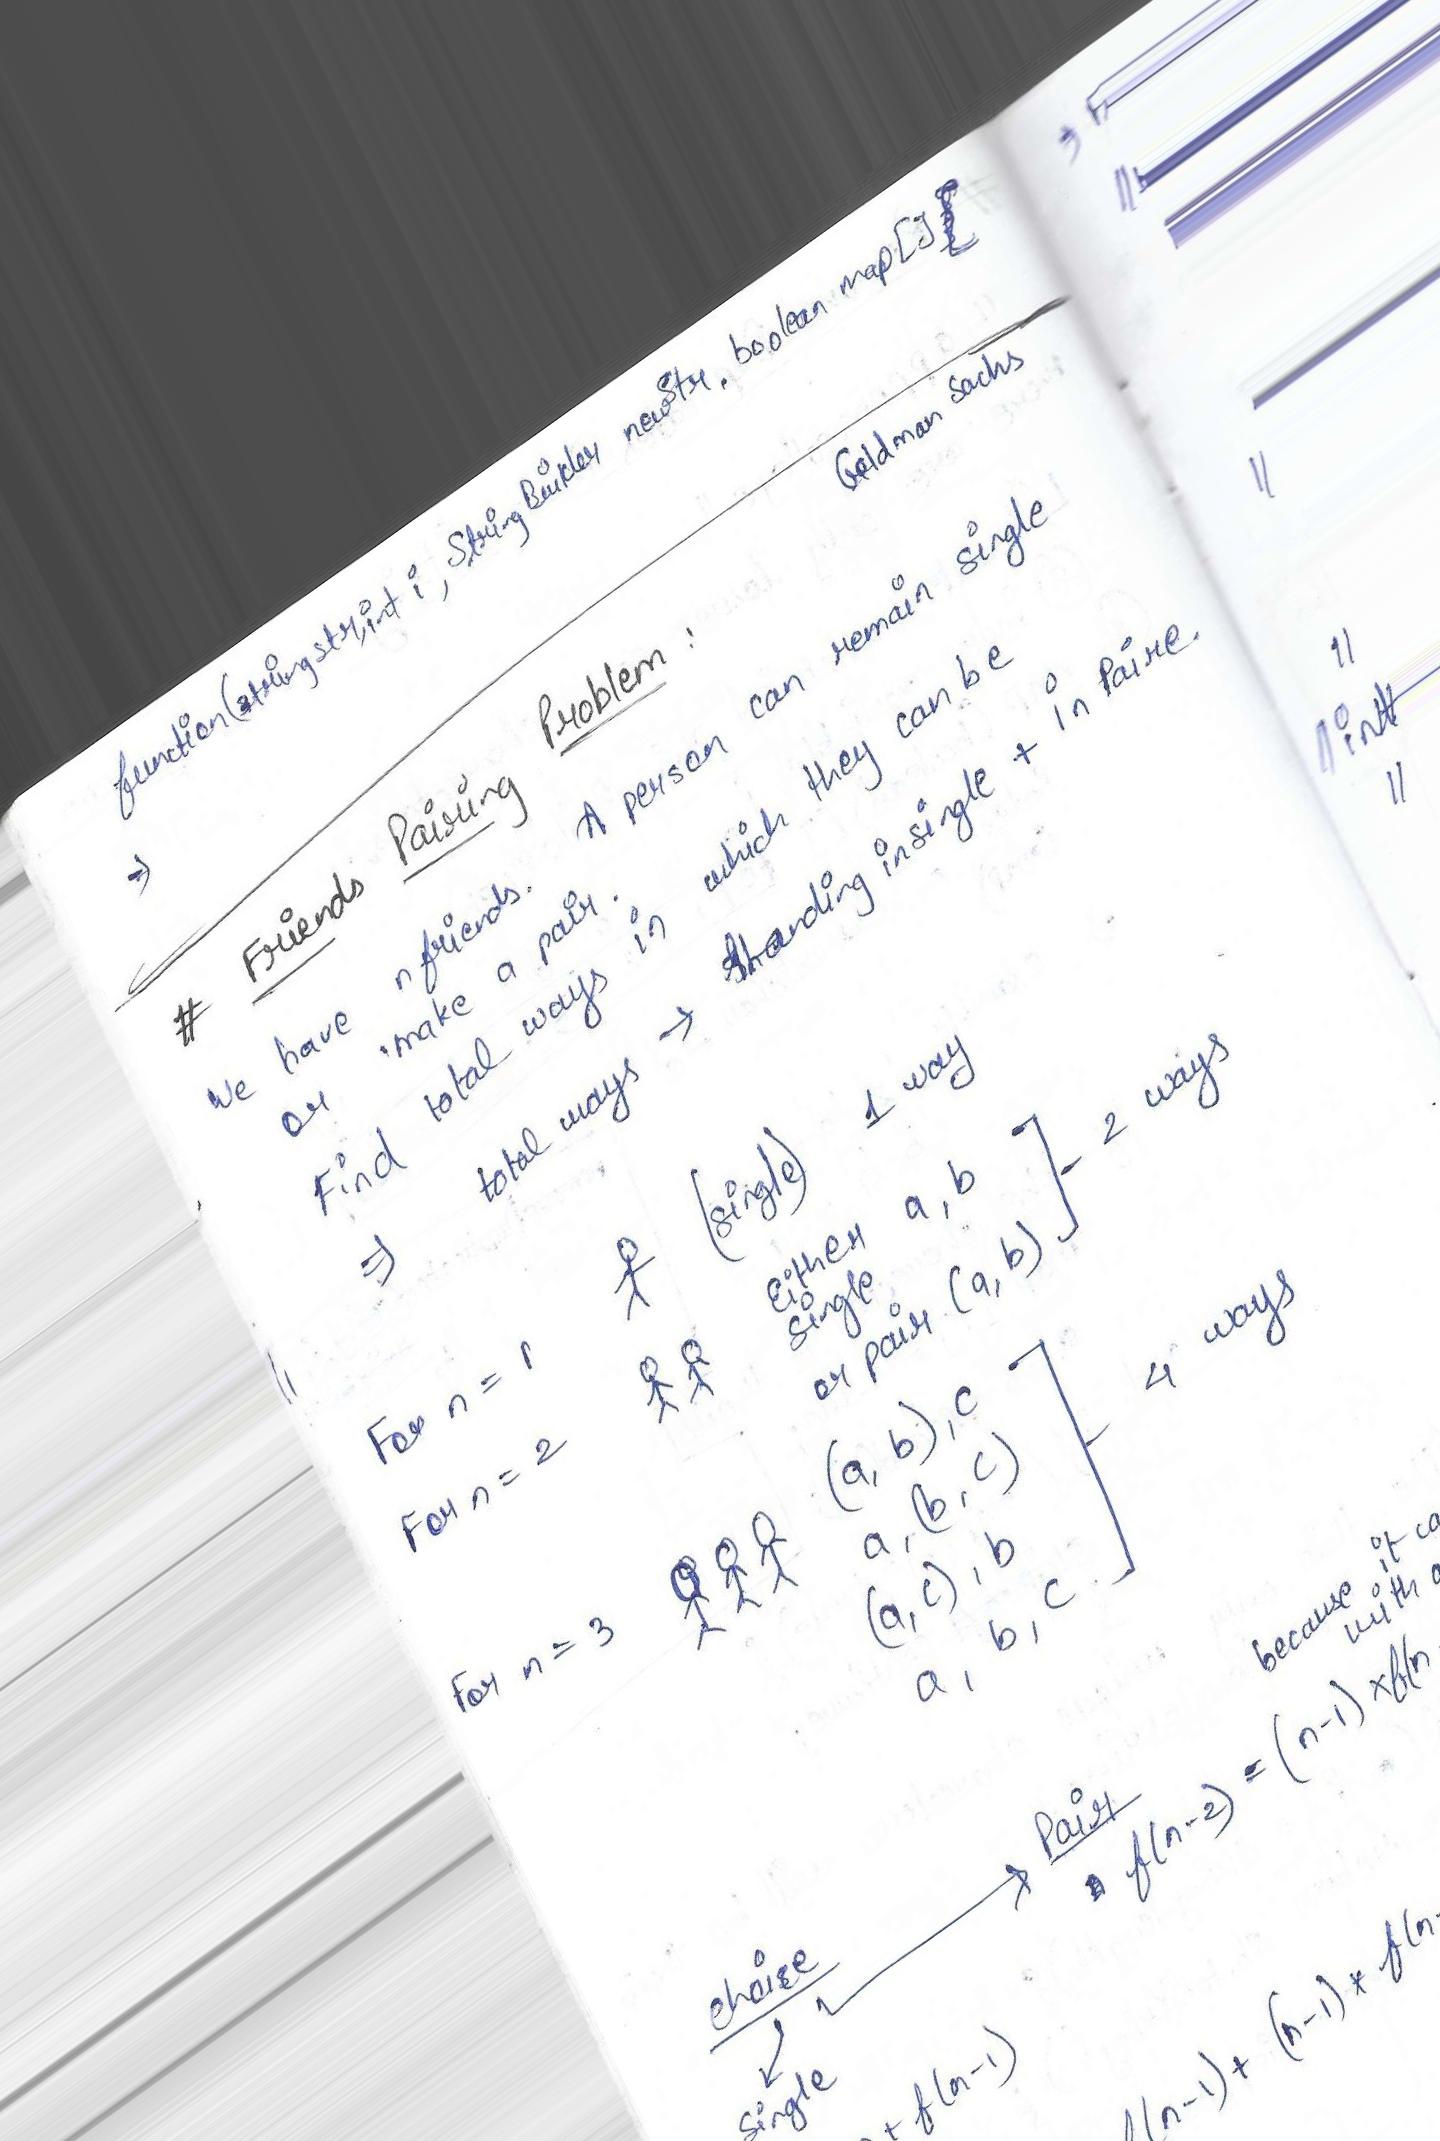 function(string str, int i, StringBuilder newStr, boolean map[]){
⇒
Goldman Sachs
# Friends Pairing Problem :
We have n friends. A person can remain single
or make a pair.
Find total ways in which they can be
⇒ total ways → Standing in single + in Paire.
For n = 1 (single) 1 way
For n = 2 either single a, b
or pair (a, b)
2 ways
For n = 3 (a, b), c
a, (b, c)
(a, c), b
a, b, c
4 ways
because it
with
choise
Pair
f(n-2) = (n-1) × f(n-
single
+ f(n-1)
f(n-1) + (n-1) * f(n-